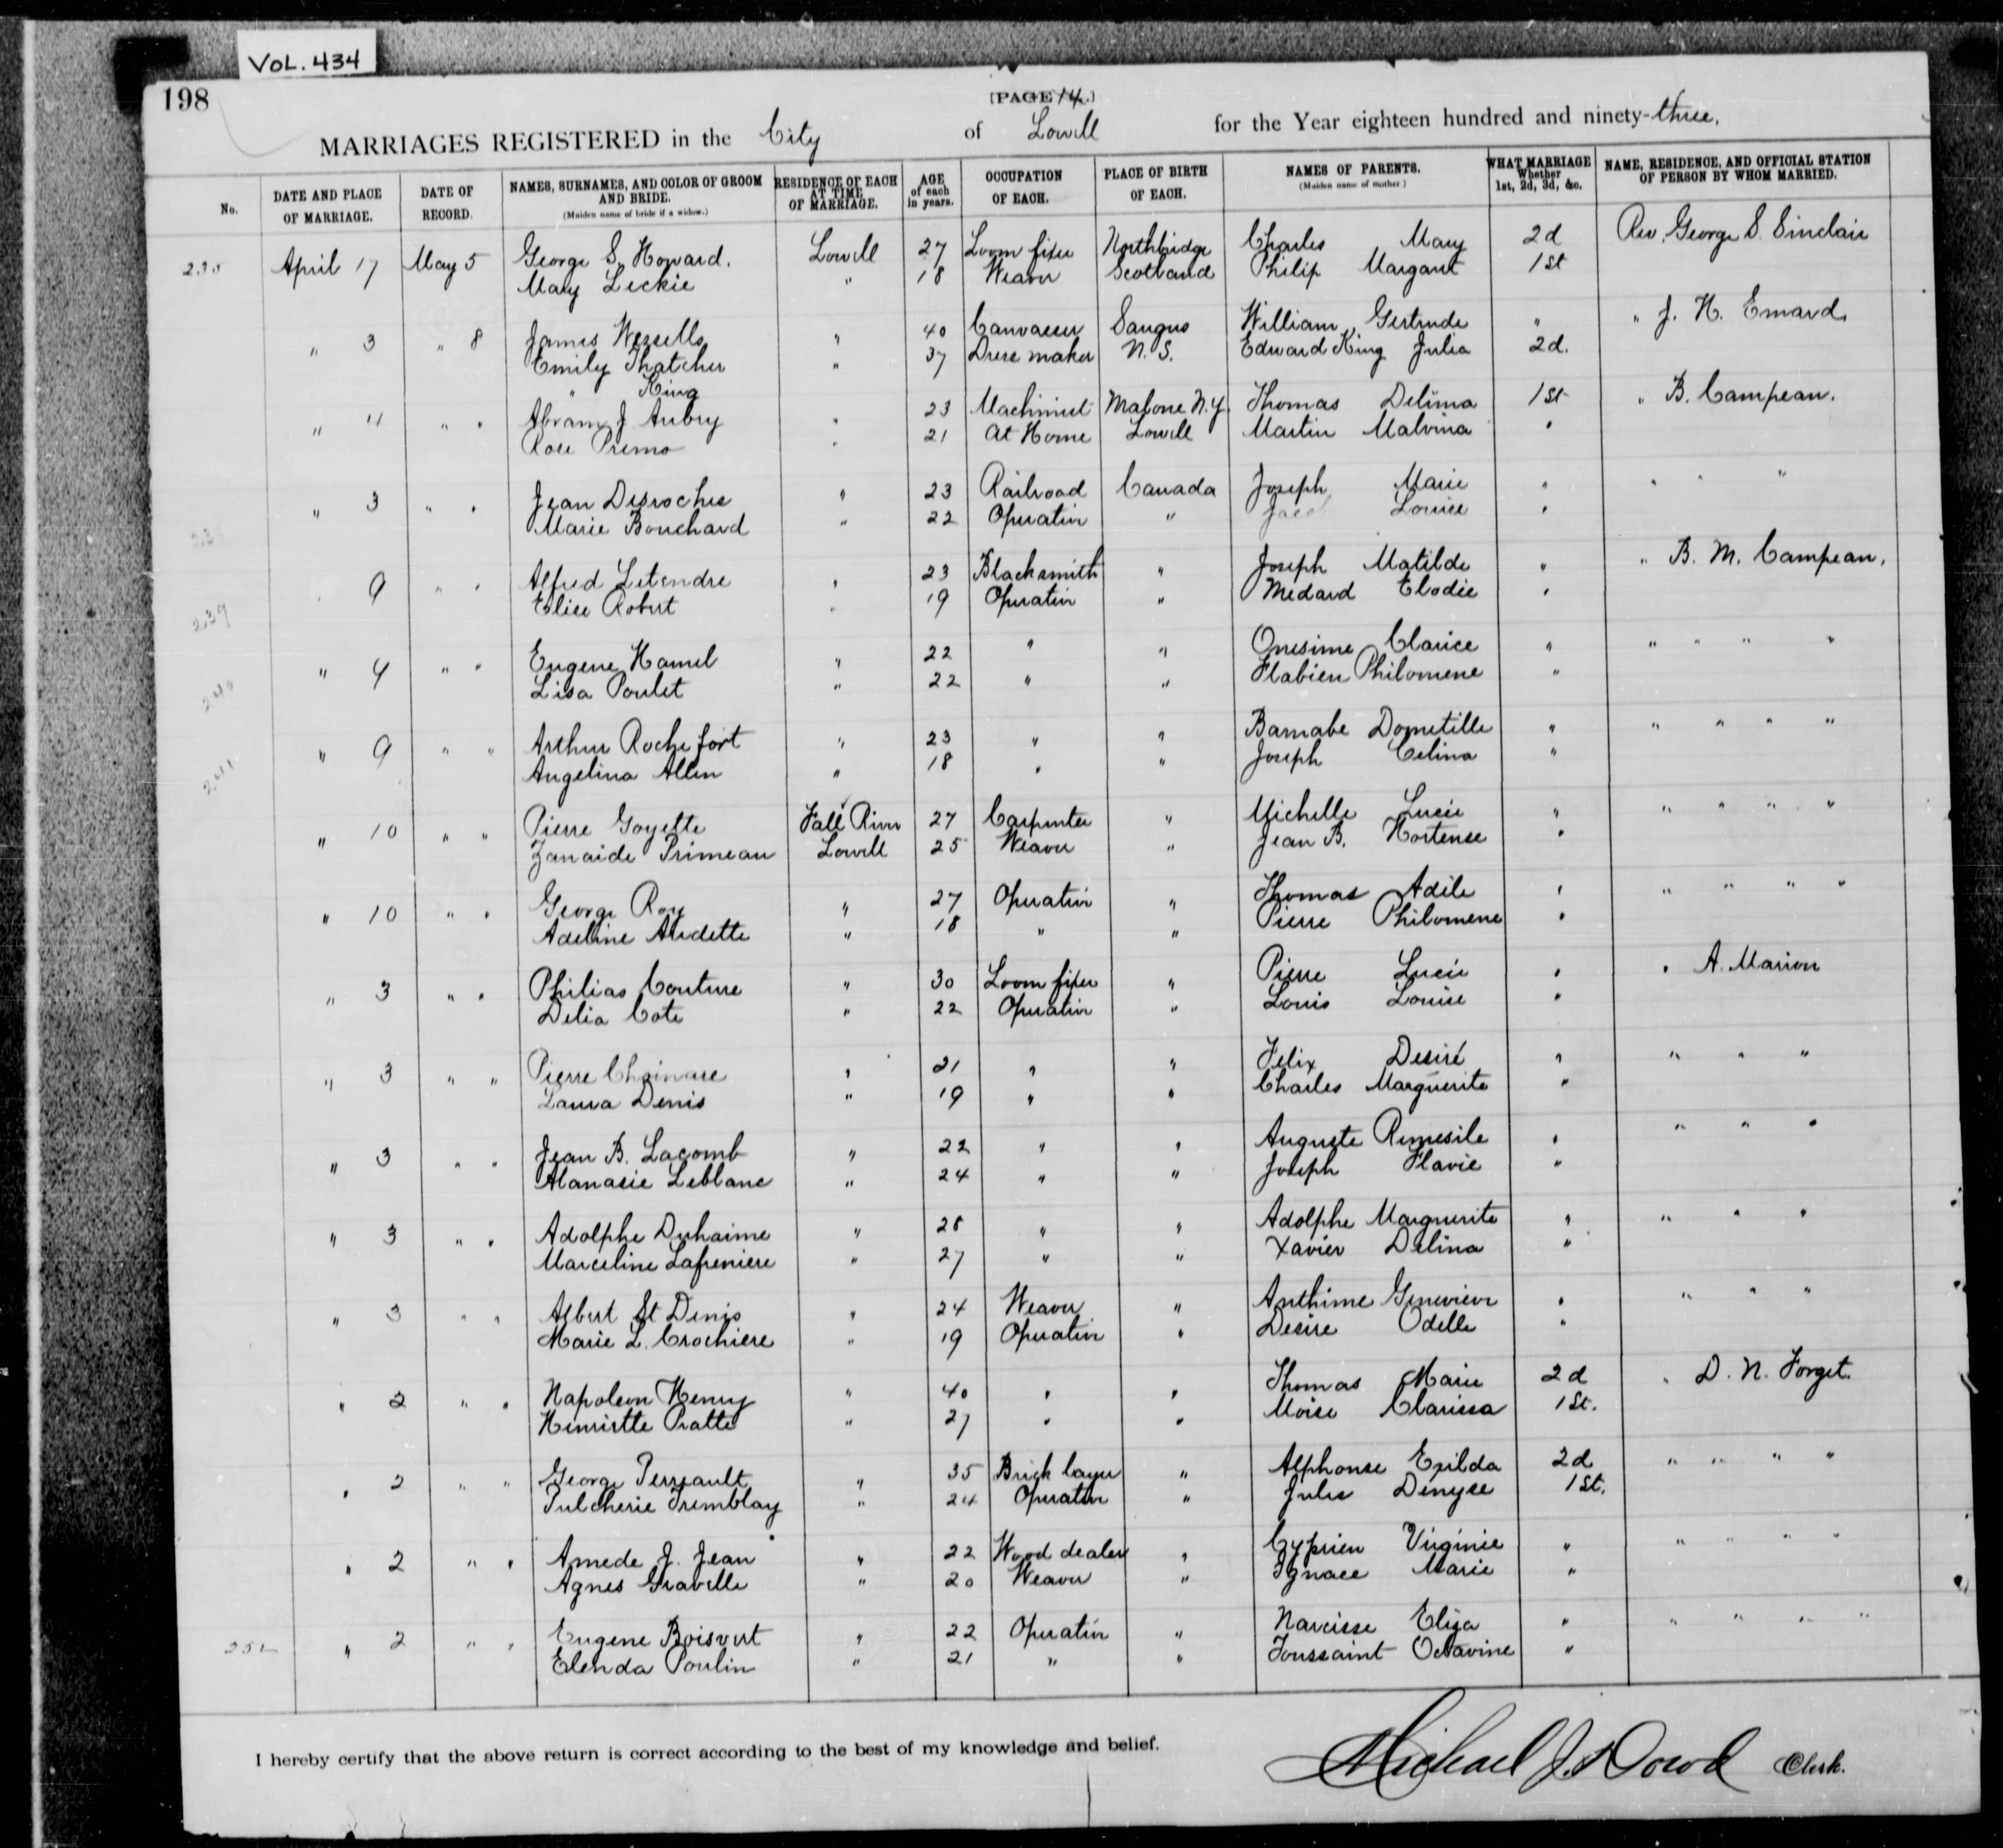 VOL. 434
198
[PAGE 14.]
MARRIAGES REGISTERED in the City of Lowell for the Year eighteen hundred and ninety-three.
No. DATE AND PLACE OF MARRIAGE. DATE OF RECORD. NAMES, SURNAMES, AND COLOR OF GROOM AND BRIDE. (Maiden name of bride if a widow.) RESIDENCE OF EACH AT TIME OF MARRIAGE. AGE of each in years. OCCUPATION OF EACH. PLACE OF BIRTH OF EACH. NAMES OF PARENTS. (Maiden name of mother.) WHAT MARRIAGE Whether 1st, 2d, 3d, &c. NAME, RESIDENCE, AND OFFICIAL STATION OF PERSON BY WHOM MARRIED.
235 April 17 May 5 George S. Howard. Lowell 27 Loom fixer Northbridge Charles Mary 2d Rev. George S. Sinclair
Mary Leckie " 18 Weaver Scotland Philip Margaret 1st
" 3 " 8 James Wessells " 40 Canvasser Saugus William Gertrude " " J. H. Emard.
Emily Thatcher " 37 Dress maker N. S. Edward King Julia 2d.
" King
" " " Abram J. Aubry " 23 Machinist Malone N.Y. Thomas Delima 1st " B. Campeau.
Rose Primo " 21 At Home Lowell Martin Malvina "
" 3 " " Jean Desroches " 23 Railroad Canada Joseph Marie " " " "
Marie Bouchard " 22 Operative " Louise "
239 9 " " Alfred Letendre " 23 Blacksmith " Joseph Matilde " " B. M. Campeau.
Elise Robert " 19 Operative " Medard Elodie "
240 " 4 " " Eugene Hamel " 22 " " Onesime Clarice " " " " "
Lisa Poulet " 22 " " Flabien Philomene "
241 " 9 " " Arthur Rochefort " 23 " " Barnabe Dometille " " " " "
Angelina Allen " 18 " " Joseph Celina "
" 10 " " Pierre Goyette Fall River 27 Carpenter " Michelle Lucie " " " " "
Zanaide Primeau Lowell 25 Weaver " Jean B. Hortense "
" 10 " " George Roy " 27 Operative " Thomas Adile " " " " "
Adeline Audette " 18 " " Pierre Philomene "
" 3 " " Philias Couture " 30 Loom fixer " Pierre Lucie " " A. Marion
Delia Cote " 22 Operative " Louis Louise "
" 3 " " Pierre " 21 " " Felix Desiré " " " "
Laura Denis " 19 " " Charles Marguerite "
" 3 " " Jean B. Lacomb " 22 " " Auguste " " " "
Leblanc " 24 " " Joseph Flavie "
" 3 " " Adolphe Duhaime " 28 " " Adolphe Marguerite " " " "
Marceline Lafreniere " 27 " " Xavier Delina "
" 3 " " Albert St Denis " 24 Weaver " Anthime Genevieve " " " "
Marie L. Crochiere " 19 Operative " Desire Odelle "
" 2 " " Napoleon Henry " 40 " " Thomas Marie 2d " D. N. Forget.
Henriette Pratte " 27 " " Moise Clarissa 1St.
" 2 " " George Perreault " 35 Brick layer " Alphonse Exilda 2d " " " "
Pulcherie Tremblay " 24 Operative " Jules Denyse 1st.
" 2 " " Amede J. Jean " 22 Wood dealer " Cyprien Virginie " " " " "
Agnes Gravelle " 20 Weaver " Ignace Marie "
252 " 2 " " Eugene Boisvert " 22 Operative " Narcisse Eliza " " " " "
Elenda Poulin " 21 " " Toussaint Octavine "
I hereby certify that the above return is correct according to the best of my knowledge and belief.
Michael J. Dowd Clerk.